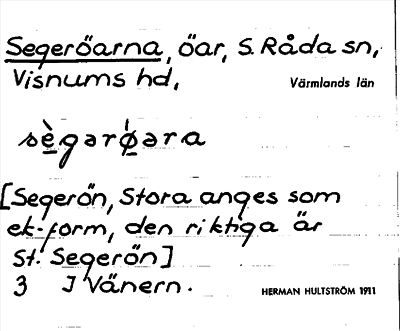 Segeröarna, öar, S. Råda sn,
Visnums hd,
Värmlands län
sè̱gərø̱̀əra
[Segerön, Stora anges som
ek.-form, den riktiga är
St. Segerön]
3 I Vänern.
HERMAN HULTSTRÖM 1911